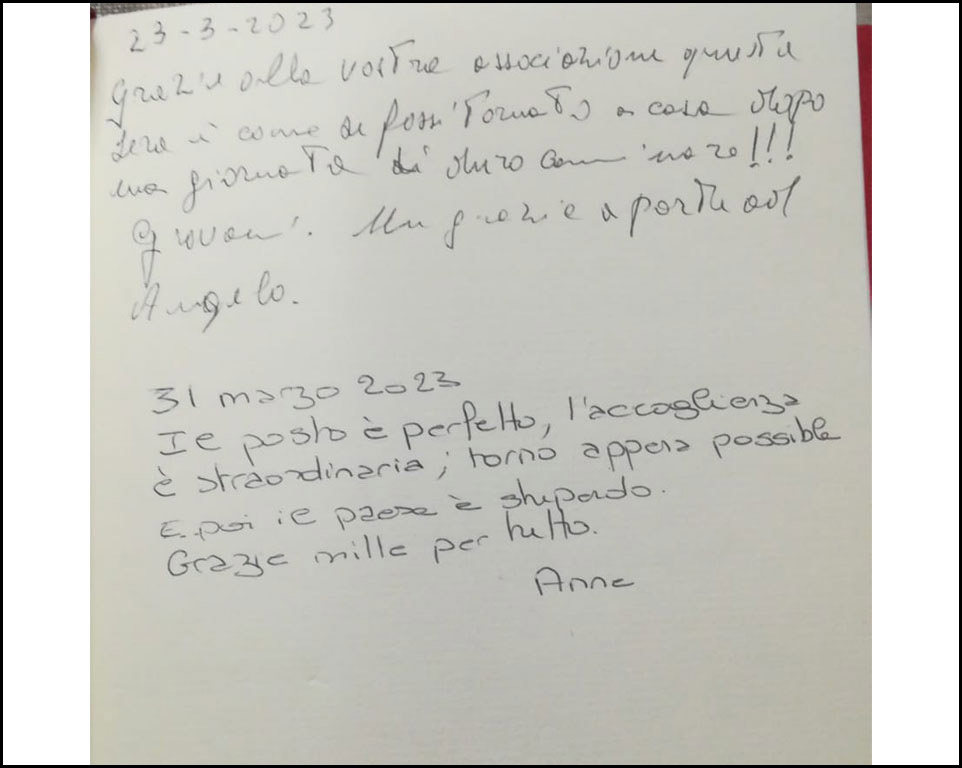 23-3-2023
Grazie alla vostra associazione questa
sera è come se fossi tornato a casa dopo
una giornata di duro camminare!!!
Giovanni. Un grazie a parte ad
Angelo.
31 marzo 2023
Il posto è perfetto, l'accoglienza
è straordinaria; torno appena possible
E poi il paese è stupendo.
Grazie mille per tutto.
Anne